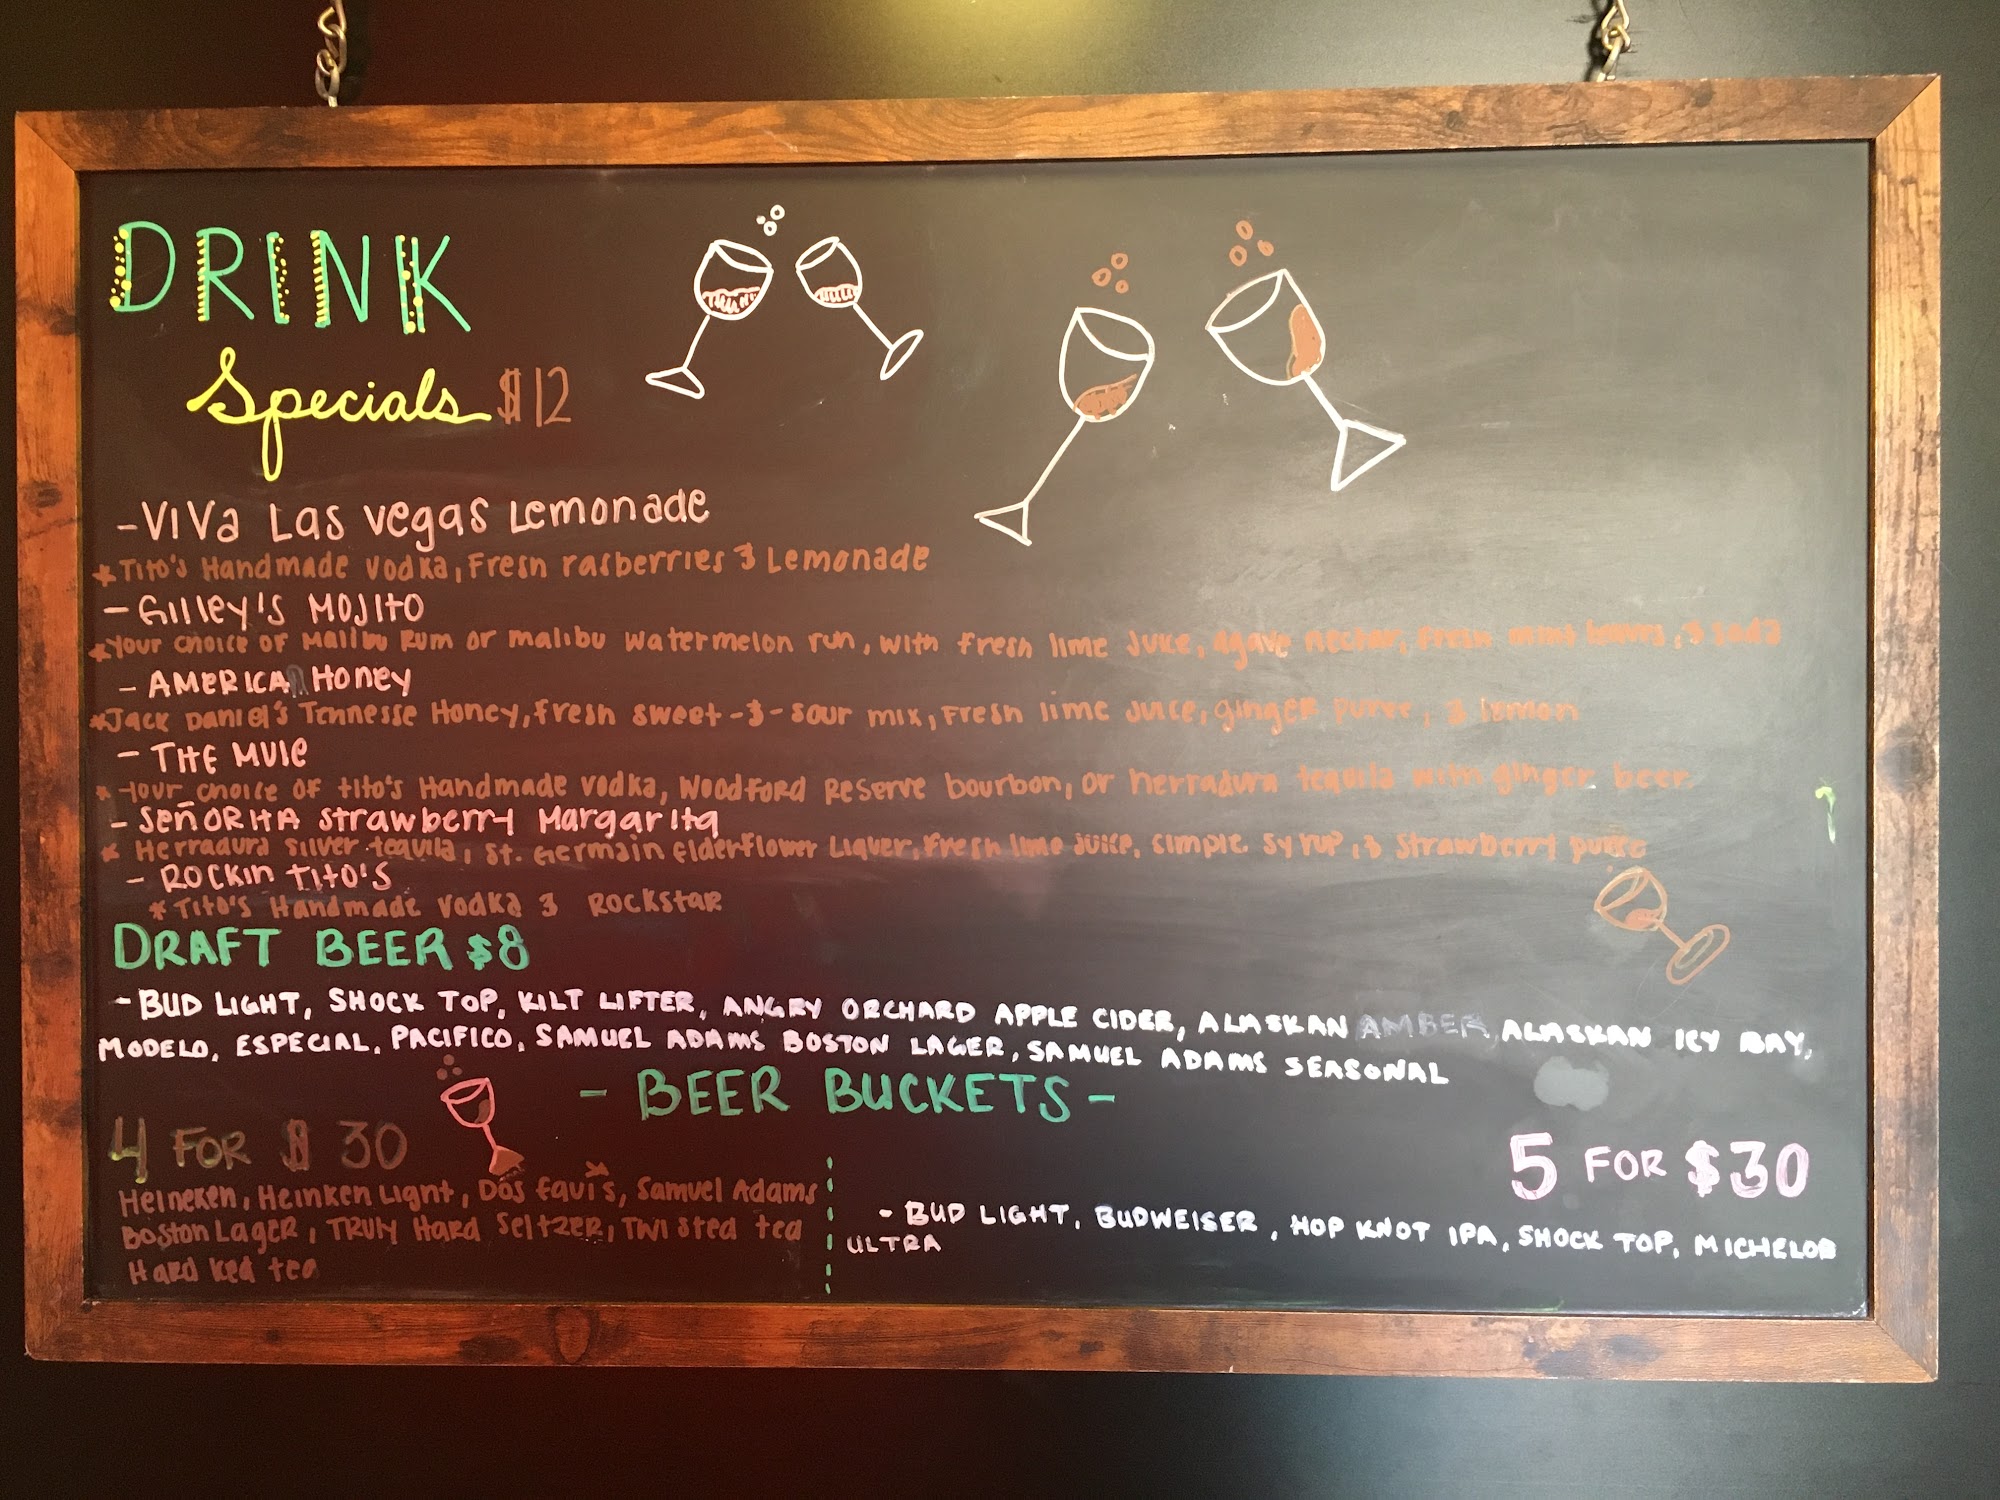 DRINK
Specials $12
- Viva Las Vegas Lemonade
* Tito's Handmade Vodka, Fresh rasberries & Lemonade
- Gilley's Mojito
* Your choice of Malibu Rum or malibu watermelon run, with fresh lime Juice, agave nectar, Fresh mint leaves, & soda
- AMERICAN Honey
* Jack Daniel's Tennesse Honey, fresh sweet-&-sour mix, Fresh lime Juice, ginger puree, & lemon
- THE MULE
* Your choice of tito's Handmade Vodka, Woodford Reserve bourbon, or herradura tequila with ginger beer
- SEÑORITA Strawberry Margarita
* Herradura silver tequila, St. Germain Elderflower Liquer, Fresh lime Juice, simple syrup, & Strawberry puree
- ROCKIN TITO'S
* Tito's Handmade Vodka & ROCKSTAR
DRAFT BEER $8
- BUD LIGHT, SHOCK TOP, KILT LIFTER, ANGRY ORCHARD APPLE CIDER, ALASKAN AMBER, ALASKAN ICY BAY,
MODELO, ESPECIAL, PACIFICO, SAMUEL ADAMS BOSTON LAGER, SAMUEL ADAMS SEASONAL
- BEER BUCKETS -
4 FOR $30
Heineken, Heinken Light, Dos Equi's, Samuel Adams
Boston Lager, TRULY Hard Seltzer, Twisted tea
Hard Iced tea
5 FOR $30
- BUD LIGHT, BUDWEISER, HOP KNOT IPA, SHOCK TOP, MICHELOB
ULTRA